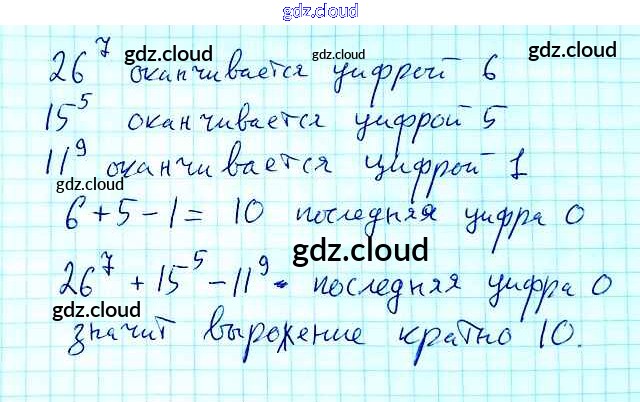 gdz.cloud
gdz.cloud gdz.cloud gdz.cloud
26⁷ оканчивается цифрой 6
15⁵ оканчивается цифрой 5
11⁹ оканчивается цифрой 1
gdz.cloud gdz.cloud
6 + 5 - 1 = 10 последняя цифра 0
gdz.cloud
26⁷ + 15⁵ - 11⁹ - последняя цифра 0
gdz.cloud gdz.cloud gdz.cloud
значит выражение кратно 10.